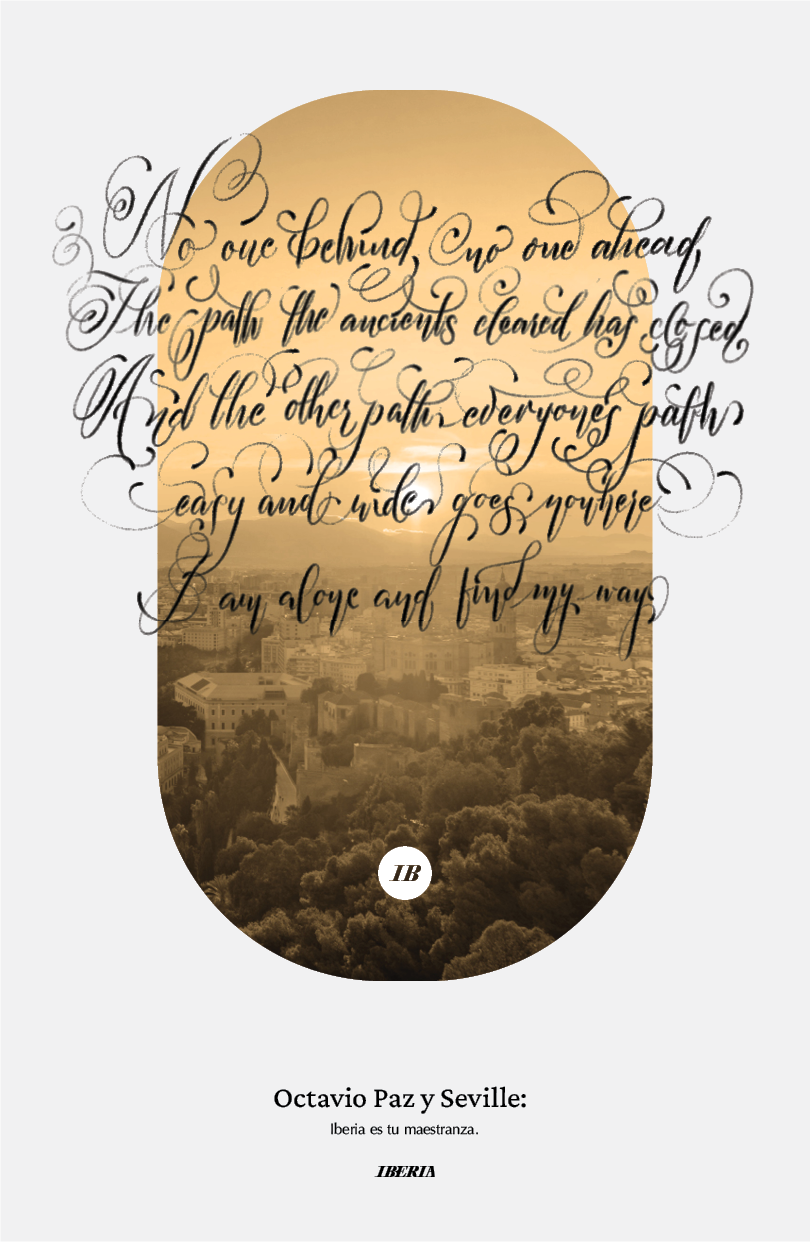 No one behind, no one ahead,
The path the ancients cleared has closed
And the other path, everyone's path,
easy and wide, goes nowhere
I am alone and find my way.
IB
Octavio Paz y Seville:
Iberia es tu maestranza.
IBERIA